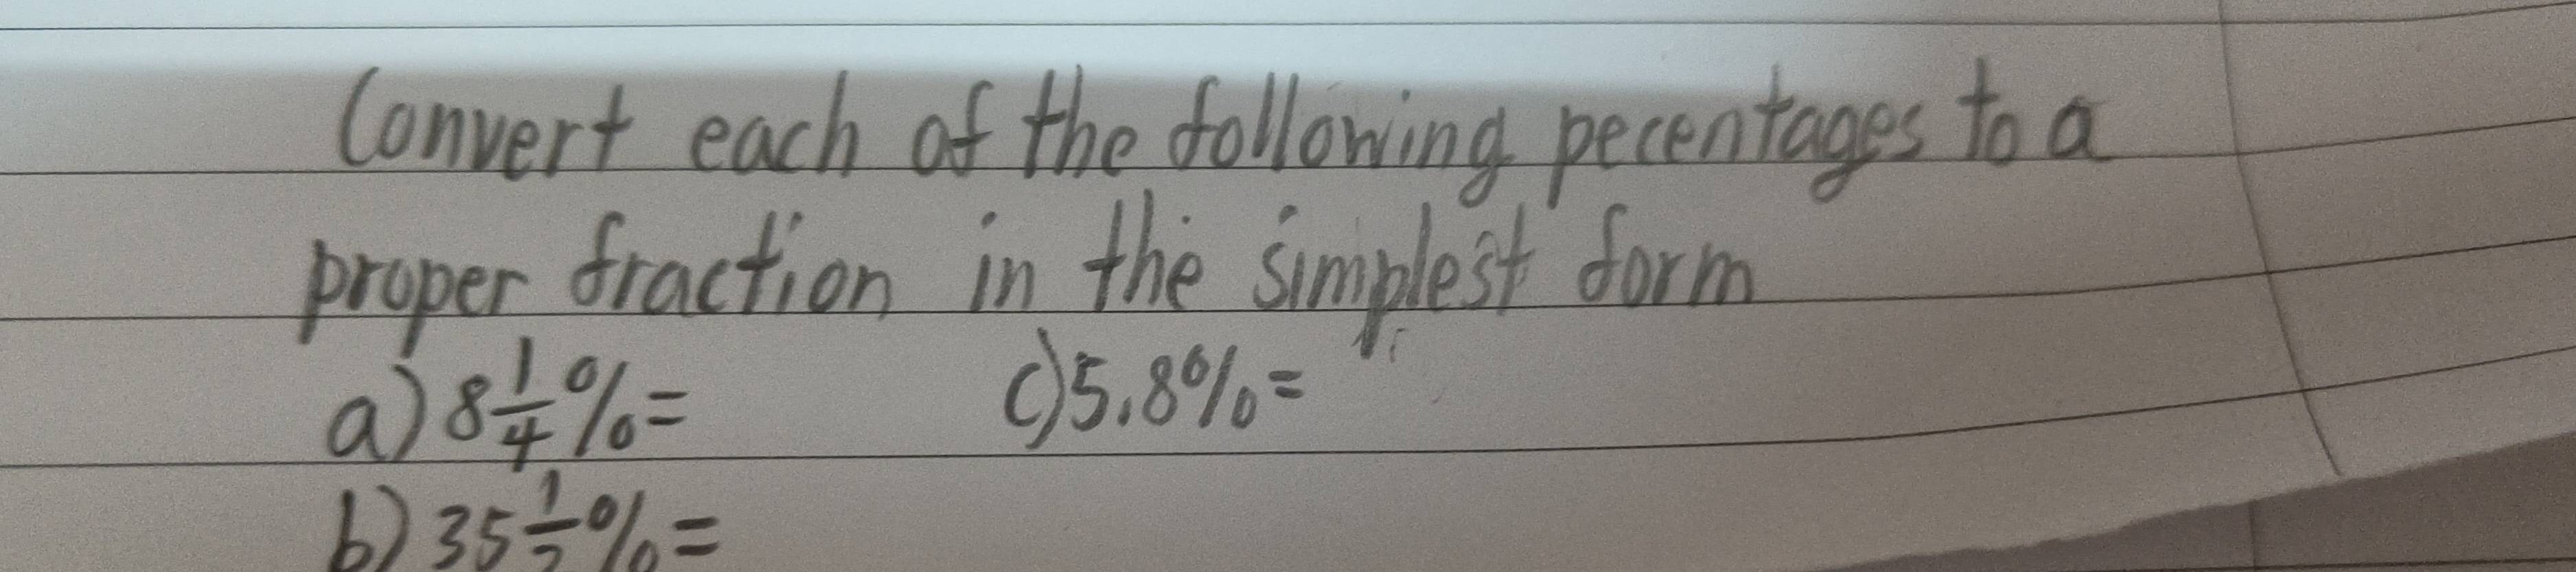 Convert each of the following pecentages to a
proper fraction in the simplest form
a) 8 1/4 % = c) 5.8% =
b) 35 % =